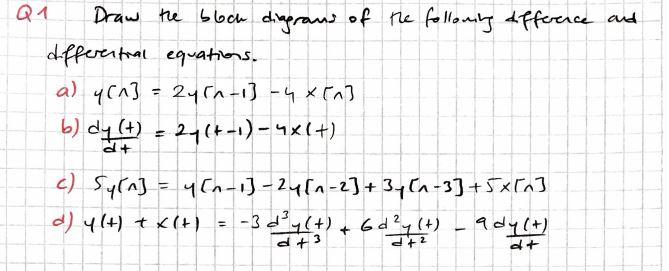 Q1 Draw the block diagrams of the following difference and
differential equations.
a) y[n] = 2y[n-1] - 4x[n]
b) dy(t)/dt = 2y(t-1) - 4x(t)
c) 5y[n] = y[n-1] - 2y[n-2] + 3y[n-3] + 5x[n]
d) y(t) + x(t) = -3 d³y(t)/dt³ + 6 d²y(t)/dt² - 9 dy(t)/dt